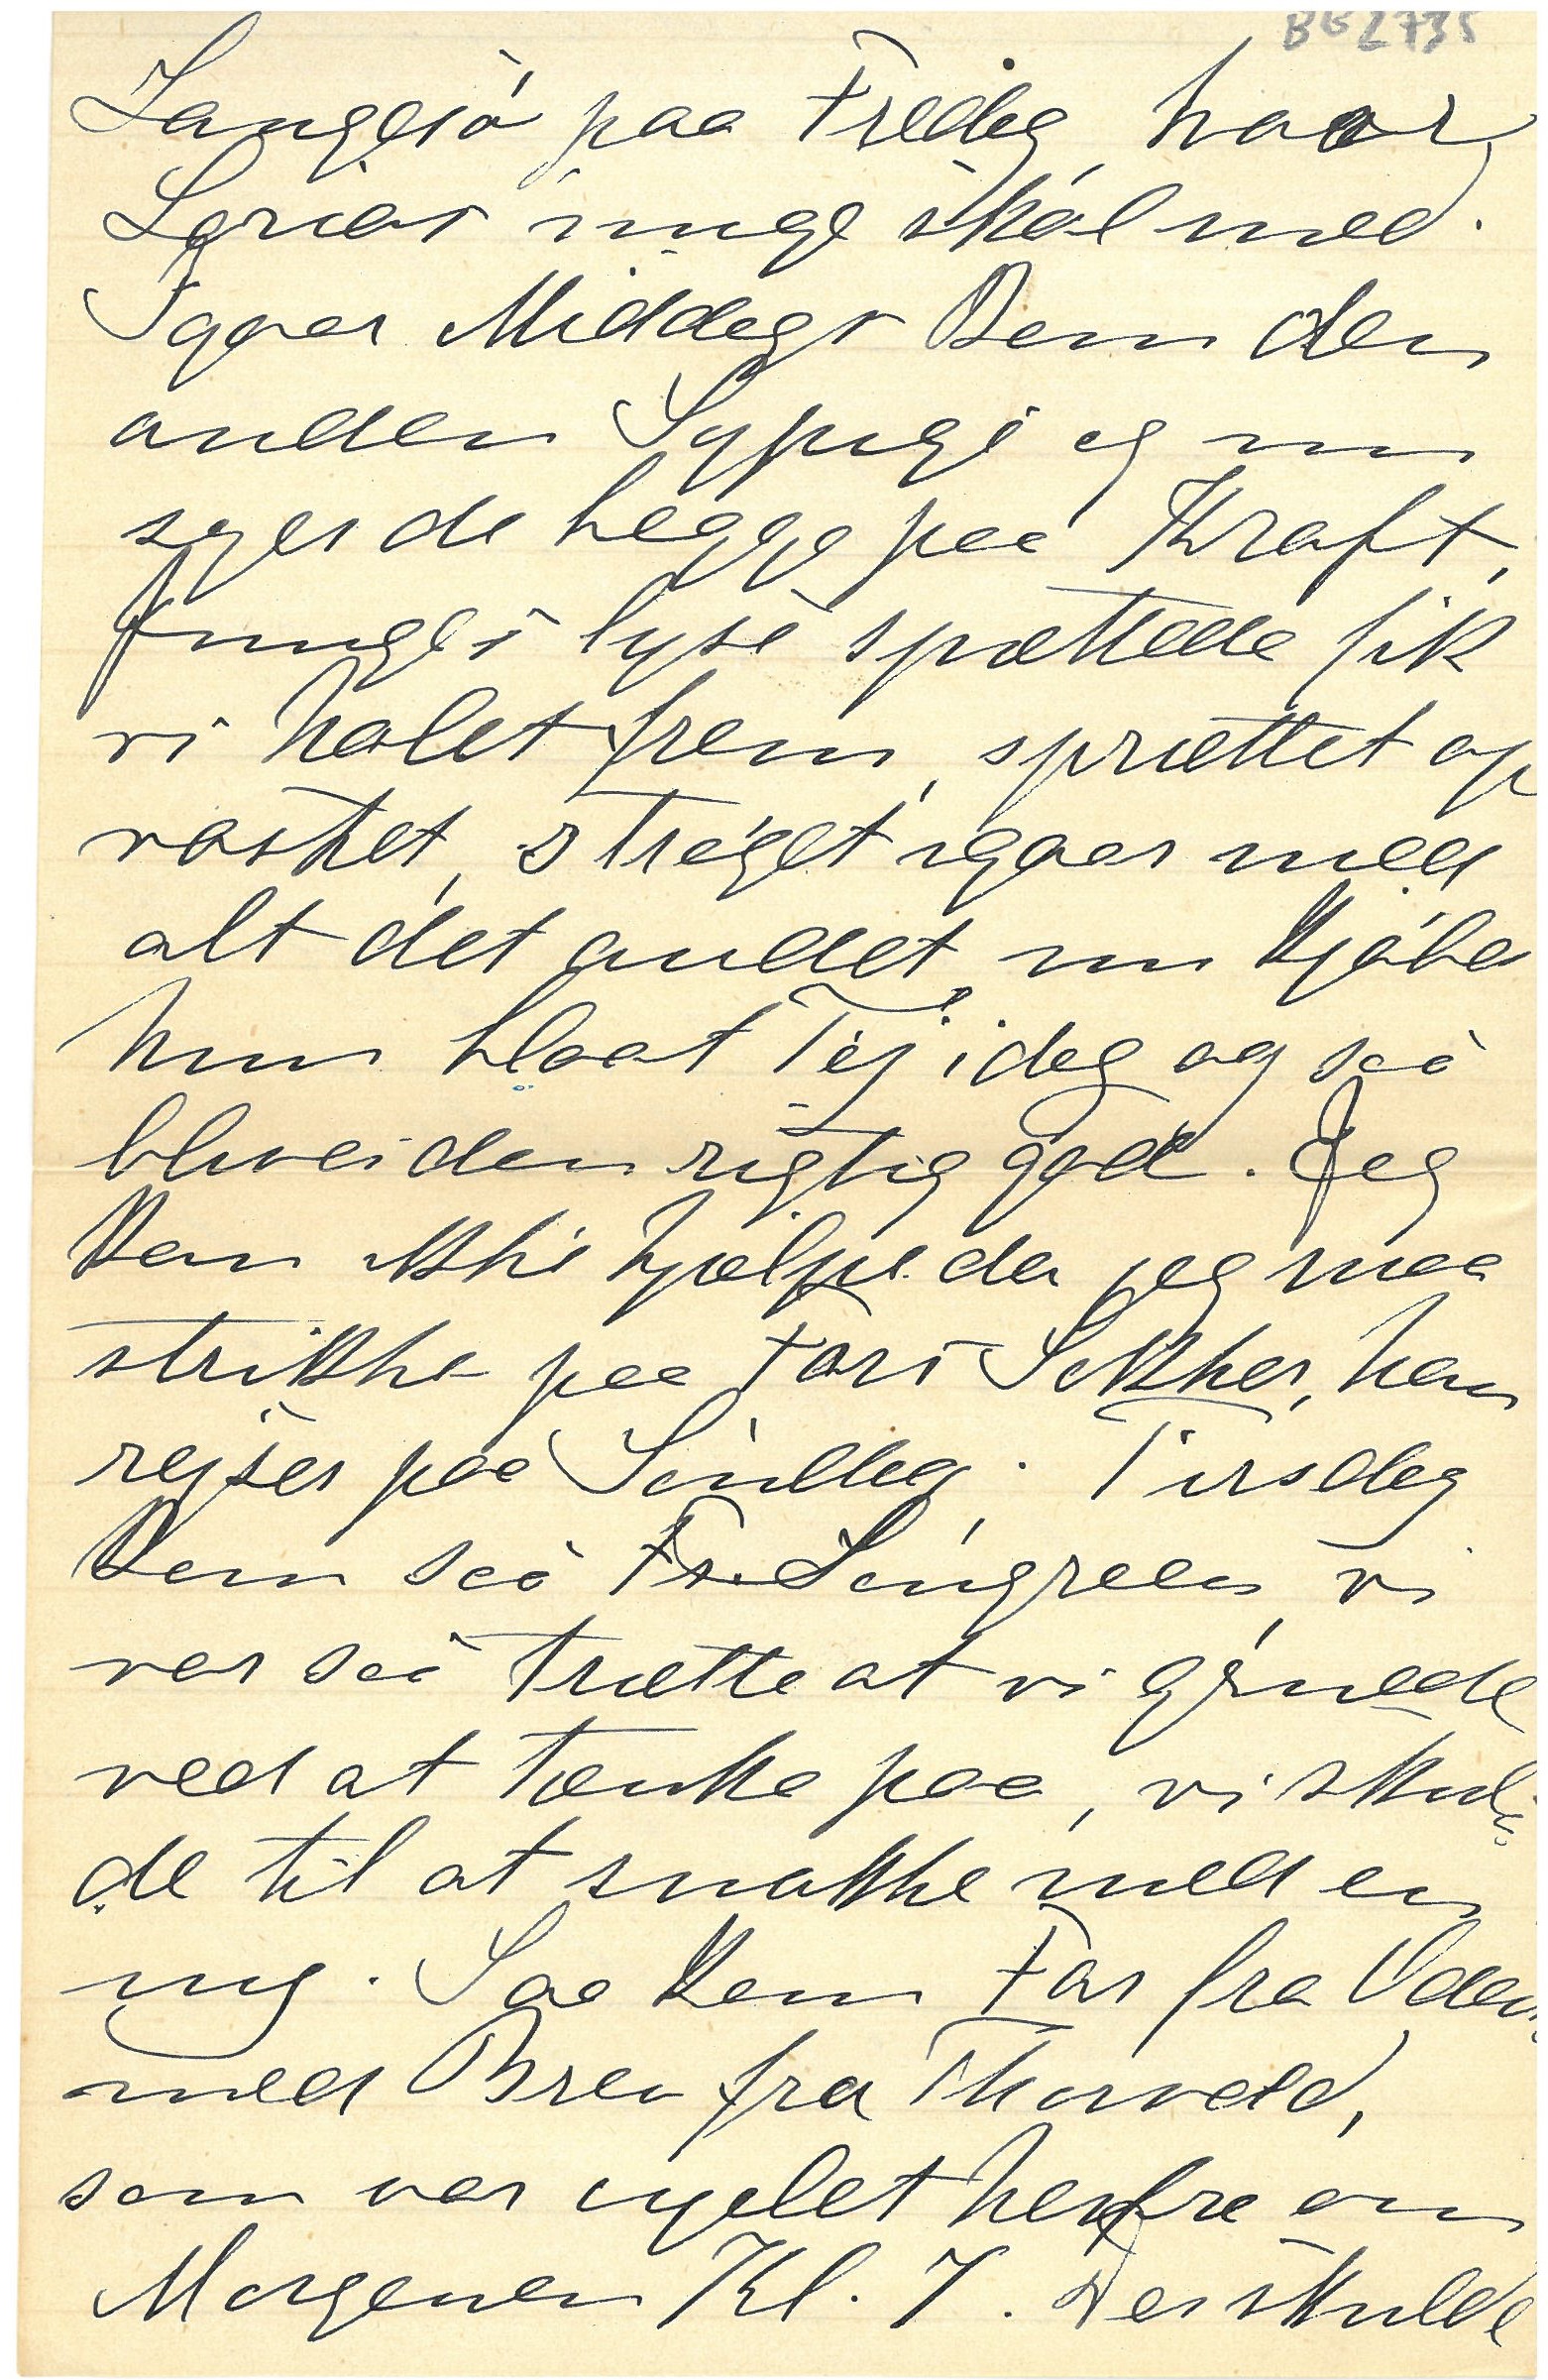 BB2735
Langesö paa Fredag, hvor
Løriæs inge skal med.
Igaar Middags Kom den
anden Sypige og nu
syer de begge paa Kraft,
Junges lyse spættede fik
vi halet frem, sprættet op
vasket, strøget igaar med
alt det andet, nu Kjöber
hun blaat Töj idag og saa
bliver den rigtig god. Jeg
Kan ikke hjælpe da jeg maa
strikke paa Fars Sokker, han
rejser paa Söndag. Tirsdag
Kom saa Fr. Syngreen, vi
var saa trætte at vi grinede
ved at tænke paa, vi skul-
de til at snakke med en
ny. Saa Kom Far fra Odense
med Brev fra Thorvald,
som var cyclet herfra om
Morgenen Kl. 7. Der skulde